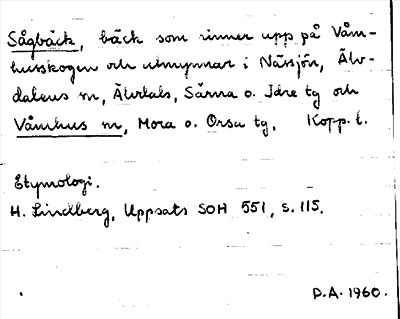 Sågbäck, bäck som rinner upp på Våm-
husskogen och utmynnar i Nässjön, Älv-
dalens sn, Älvdals, Särna o. Idre tg och
Våmhus sn, Mora o. Orsa tg, Kopp. l.
Etymologi.
H. Lindberg, Uppsats SOH 551, s. 115.
D.A. 1960.